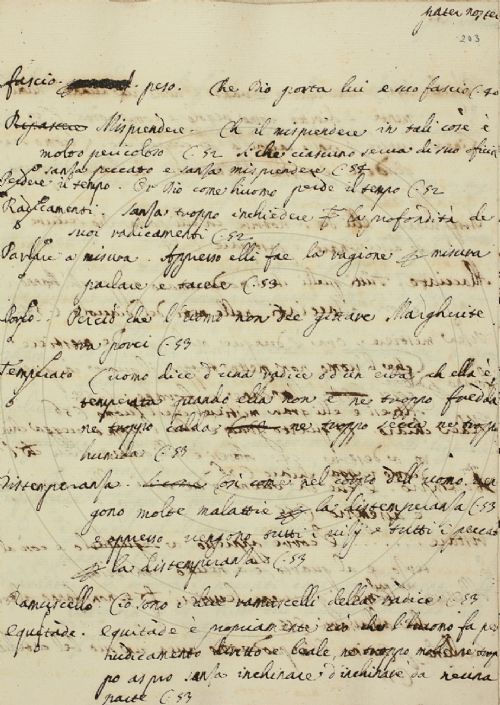 pater noster
203
fascio. peso. Che Dio porta lui e suo fascio C. 40
Mispendere. Ch il mispendere in tali cose è
molto pericoloso C. 52 si che ciascuno serva di suo officio
sansa peccato e sansa mispendere C. 54
Perdere il tempo. Or Dio come huomo perde il tempo C. 52
Radicamenti. sansa troppo inchiedere la profondità de
suoi radicamenti C. 52
Parlare a misura. Appresso elli fae la ragione misura
parlare e tacere C. 53
Porco. Perciò che l'uomo non dee gittare Margherite
tra porci C. 53
Temperato L'uomo dice d'una radice od un erba ch ella è
temperata quando ella non è ne troppo fredda
ne troppo calda, ne troppo secca ne troppo
humida C. 53
Distemperansa. Così come nel corpo dell'uomo. ven
gono molte malattie la distemperansa C. 53
e appresso vengono tutti i vizj e tutti i peccati
la distemperansa C. 53
Ramuscello Cio sono i sette ramuscelli della radice C. 53
equitade. equitade è propriamente ciò che l'huomo fa per
giudicamento diritto e leale, ne troppo molle ne trop
po aspro sansa inchinare d'inchinare da neuna
parte C. 53